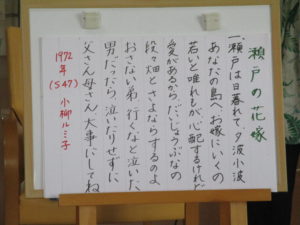 瀬戸の花嫁
一、瀬戸は日暮れて夕波小波
あなたの島へお嫁にいくの
若いと唯れもが心配するけれど
愛があるからだいじょうぶなの
段々畑とさよならするのよ
おさない弟行くなと泣いた
男だったら泣いたりせずに
父さん母さん大事にしてね
1972年(S47)小柳ルミ子